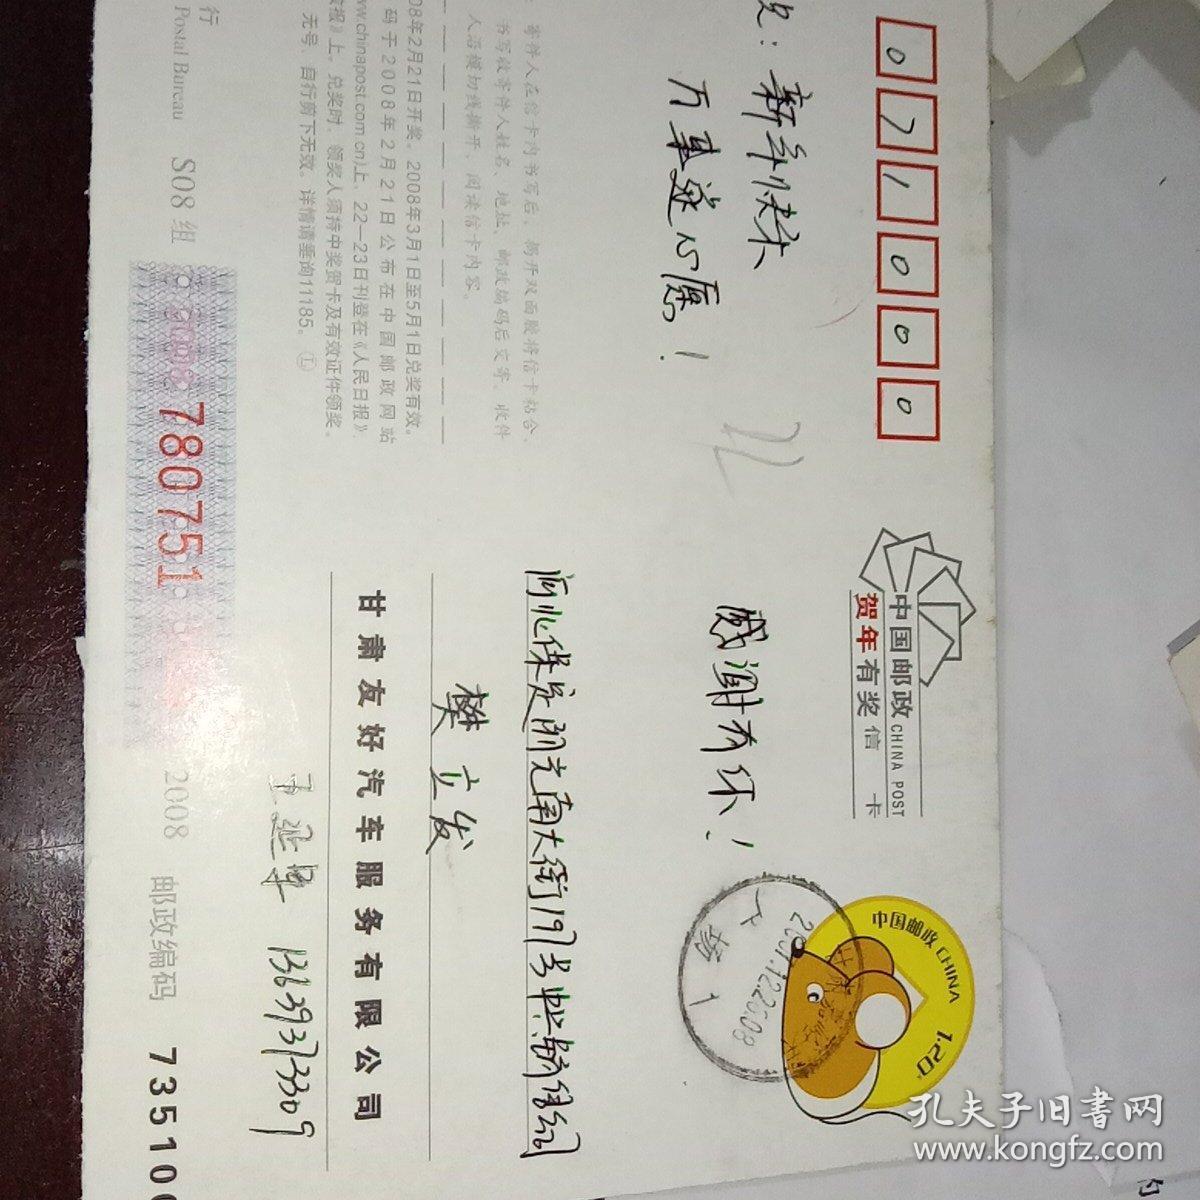 071000
祝：新年快乐
万事遂心愿！
中国邮政 CHINA POST
贺年有奖信 卡
感谢有你！
中国邮政 CHINA
1.20
2007.12.22 5.08
河北保定阳光南大街197号
樊立发
甘肃友好汽车服务有限公司
13639371309
寄件人在信卡内书写后，揭开双面胶将信卡粘合，
书写收寄件人姓名、地址、邮政编码后交寄。收件
人沿横切线撕开，阅读信卡内容。
08年2月21日开奖。2008年3月1日至5月1日兑奖有效。
码于2008年2月21日公布在中国邮政网站
www.chinapost.com.cn)上，22－23日刊登在《人民日报》、
报》上。兑奖时，领奖人须持中奖贺卡及有效证件领奖。
无号、自行剪下无效。详情请垂询11185。 Ⓛ
行
Postal Bureau S08组
2008 780751
2008 邮政编码 735100
孔夫子旧书网
www.kongfz.com